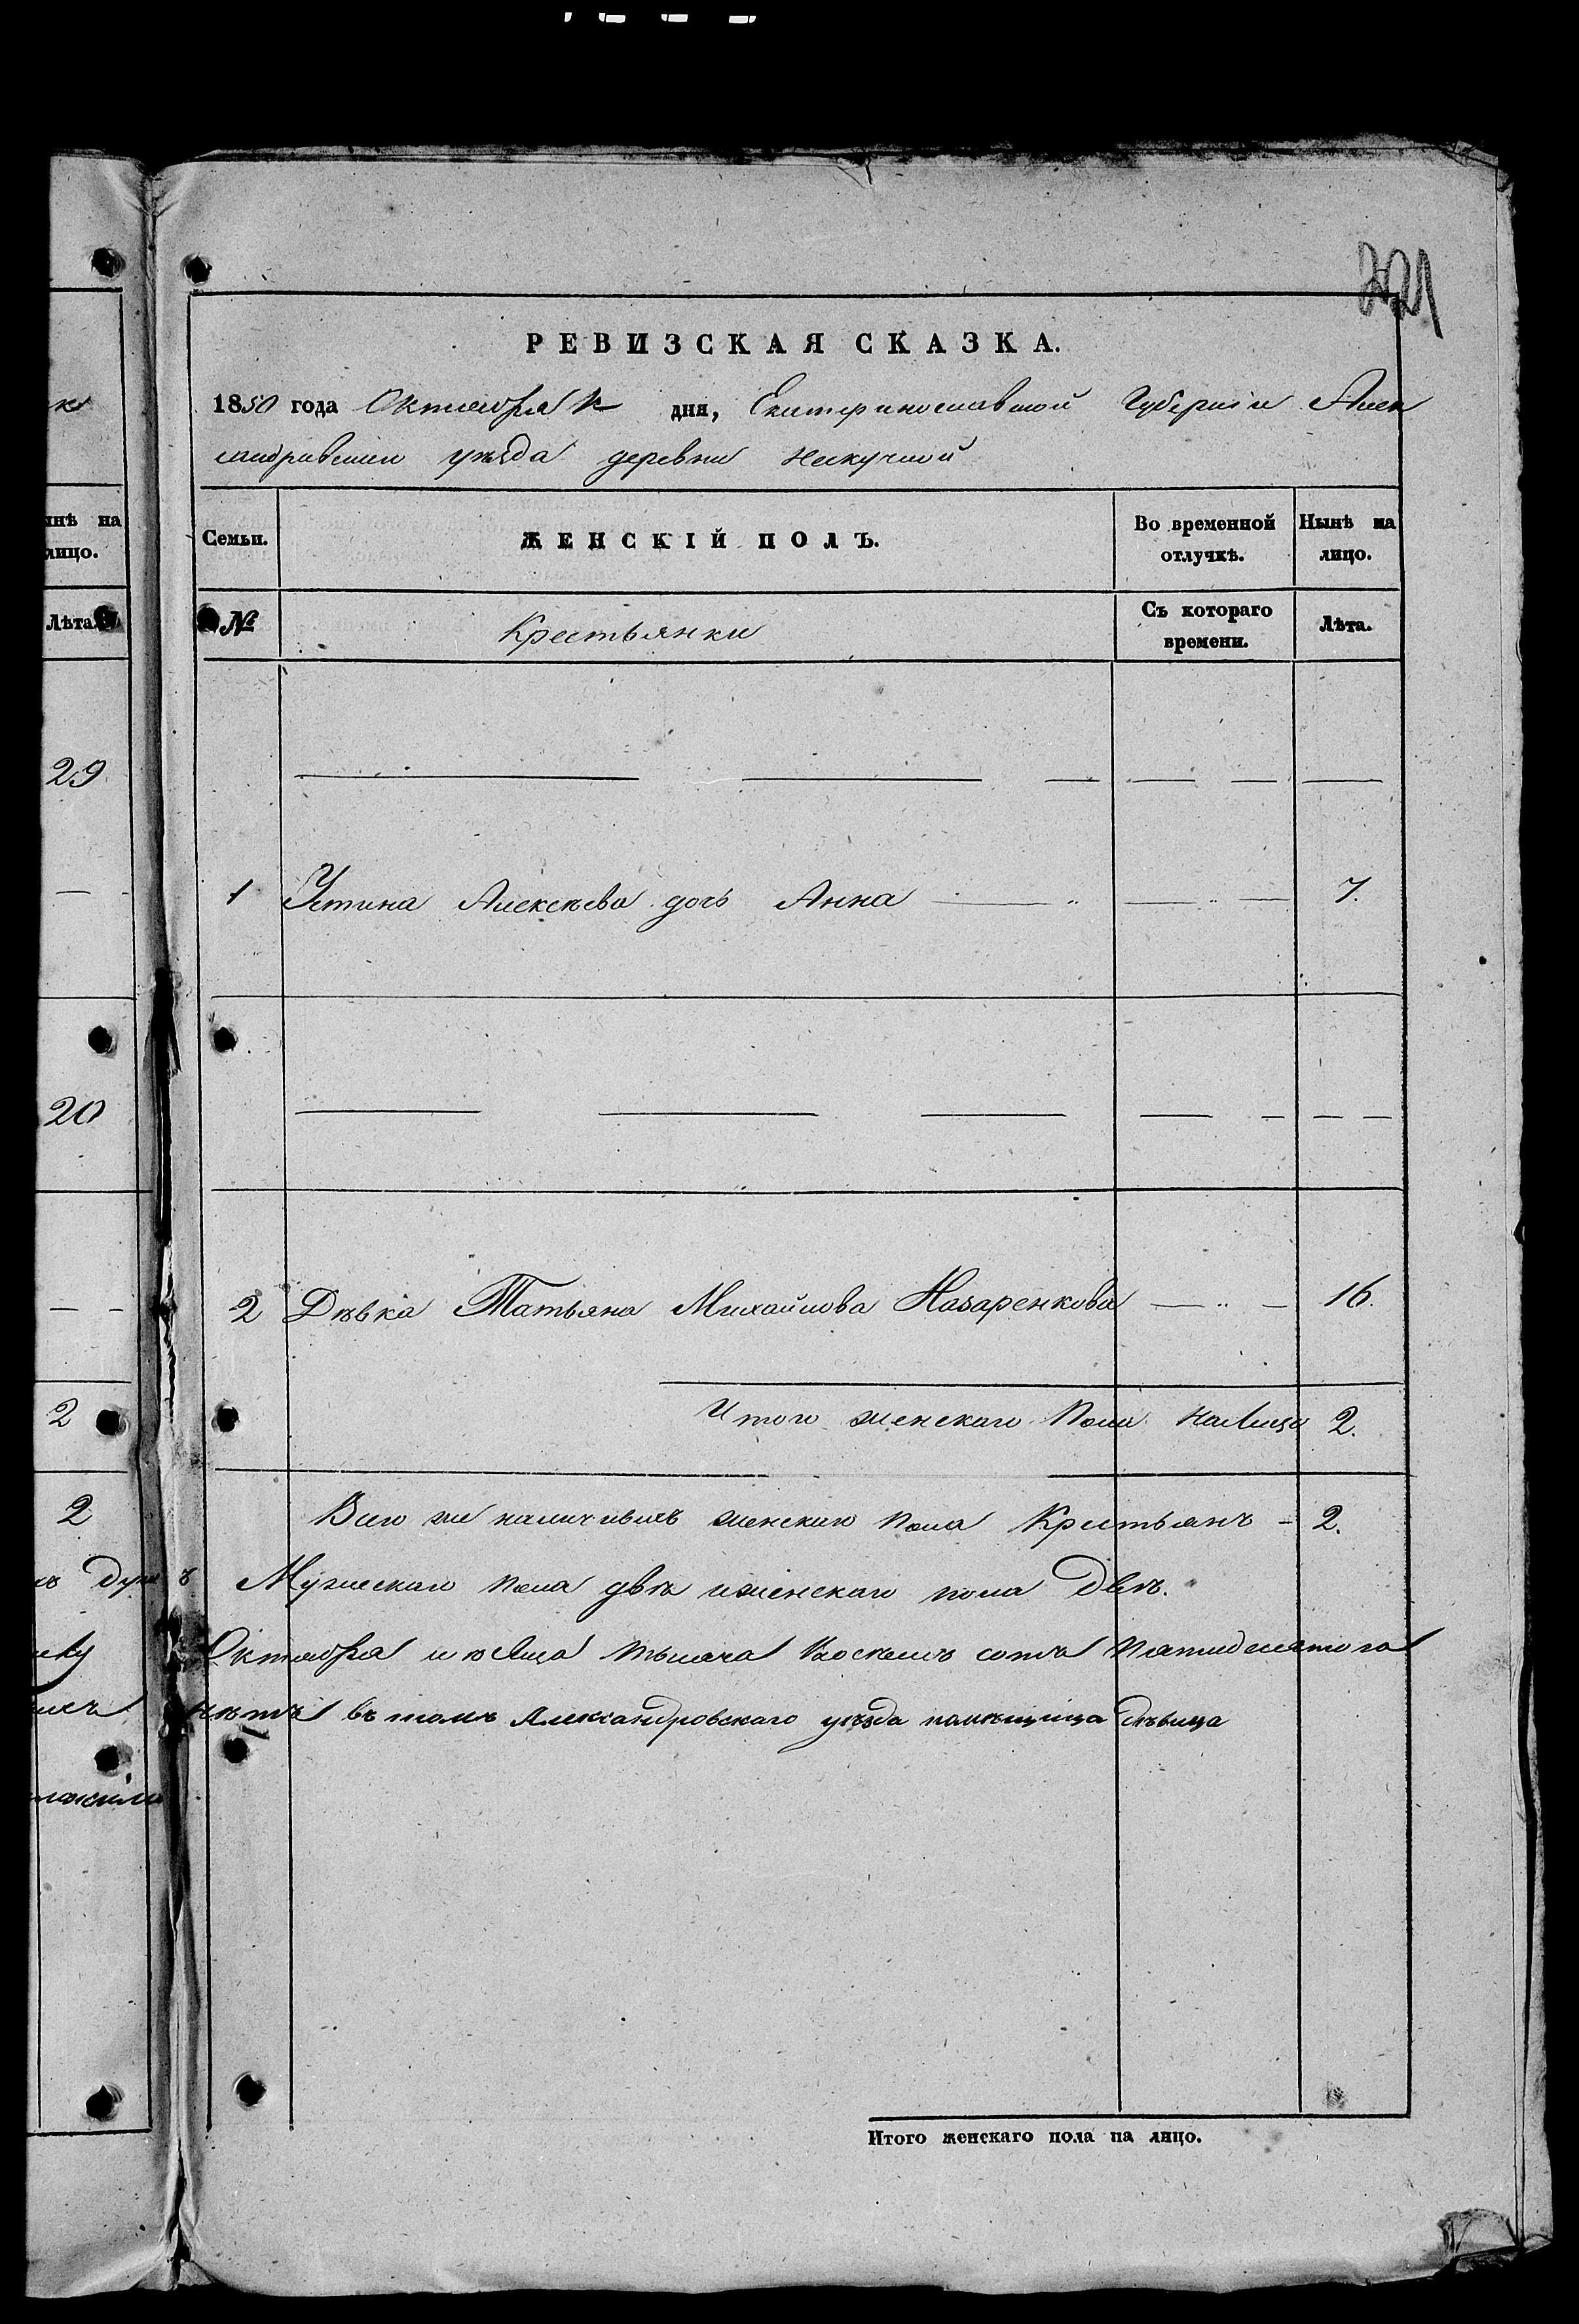 221
РЕВИЗСКАЯ СКАЗКА.
1850 года Октября дня, Екатеринославской Губернiи Алек
сандравскаго уѣзда деревни Нескучной
Семьи.
ЖЕНСКIЙ ПОЛЪ.
Во временной отлучкѣ.
Нынѣ на лицо.
№
Крестьянки
Съ котораго времени.
Лѣта.
1 Устина Алексѣева дочь Анна 7.
2 Дѣвка Татьяна Михайлова Назаренкова 16.
Итого женскаго Пола На Лицо 2.
Всего же наличныхъ женскаго пола Крестьянъ - 2.
Мужескаго пола двѣ и женскаго пола двѣ.
Октября мѣсяца тысяча восемь сотъ пятидесятого
нѣтъ въ томъ Александровскаго уѣзда помѣщица дѣвица
Итого женскаго пола на лицо.
нѣ на
лицо.
Лѣта.
29
20
2
2